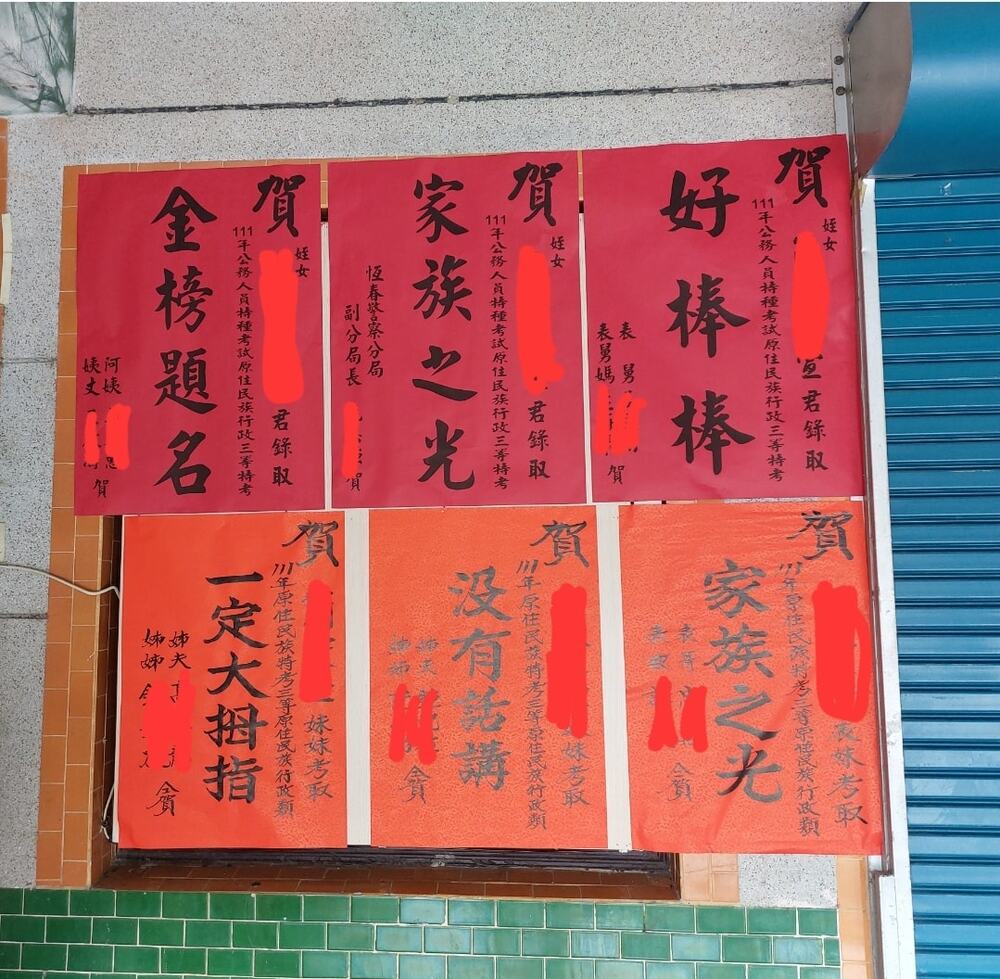 賀
姪女
宣君錄取
111年公務人員特種考試原住民族行政三等特考
好棒棒
表舅
表舅媽
賀
賀
姪女
君錄取
111年公務人員特種考試原住民族行政三等特考
家族之光
恆春警察分局
副分局長
賀
賀
姪女
君錄取
111年公務人員特種考試原住民族行政三等特考
金榜題名
阿姨
姨丈
賀
賀
表妹考取
111年原住民族特考三等原住民族行政類
家族之光
仝賀
賀
妹妹考取
111年原住民族特考三等原住民族行政類
沒有話講
姊夫
姊姊
仝賀
賀
妹妹考取
111年原住民族特考三等原住民族行政類
一定大拇指
姊夫
姊姊
仝賀